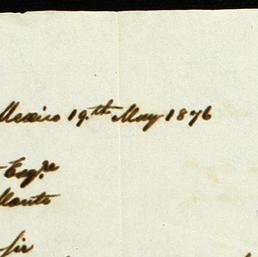 Mexico 19.th May 1876
Esqre
Monte
Sir